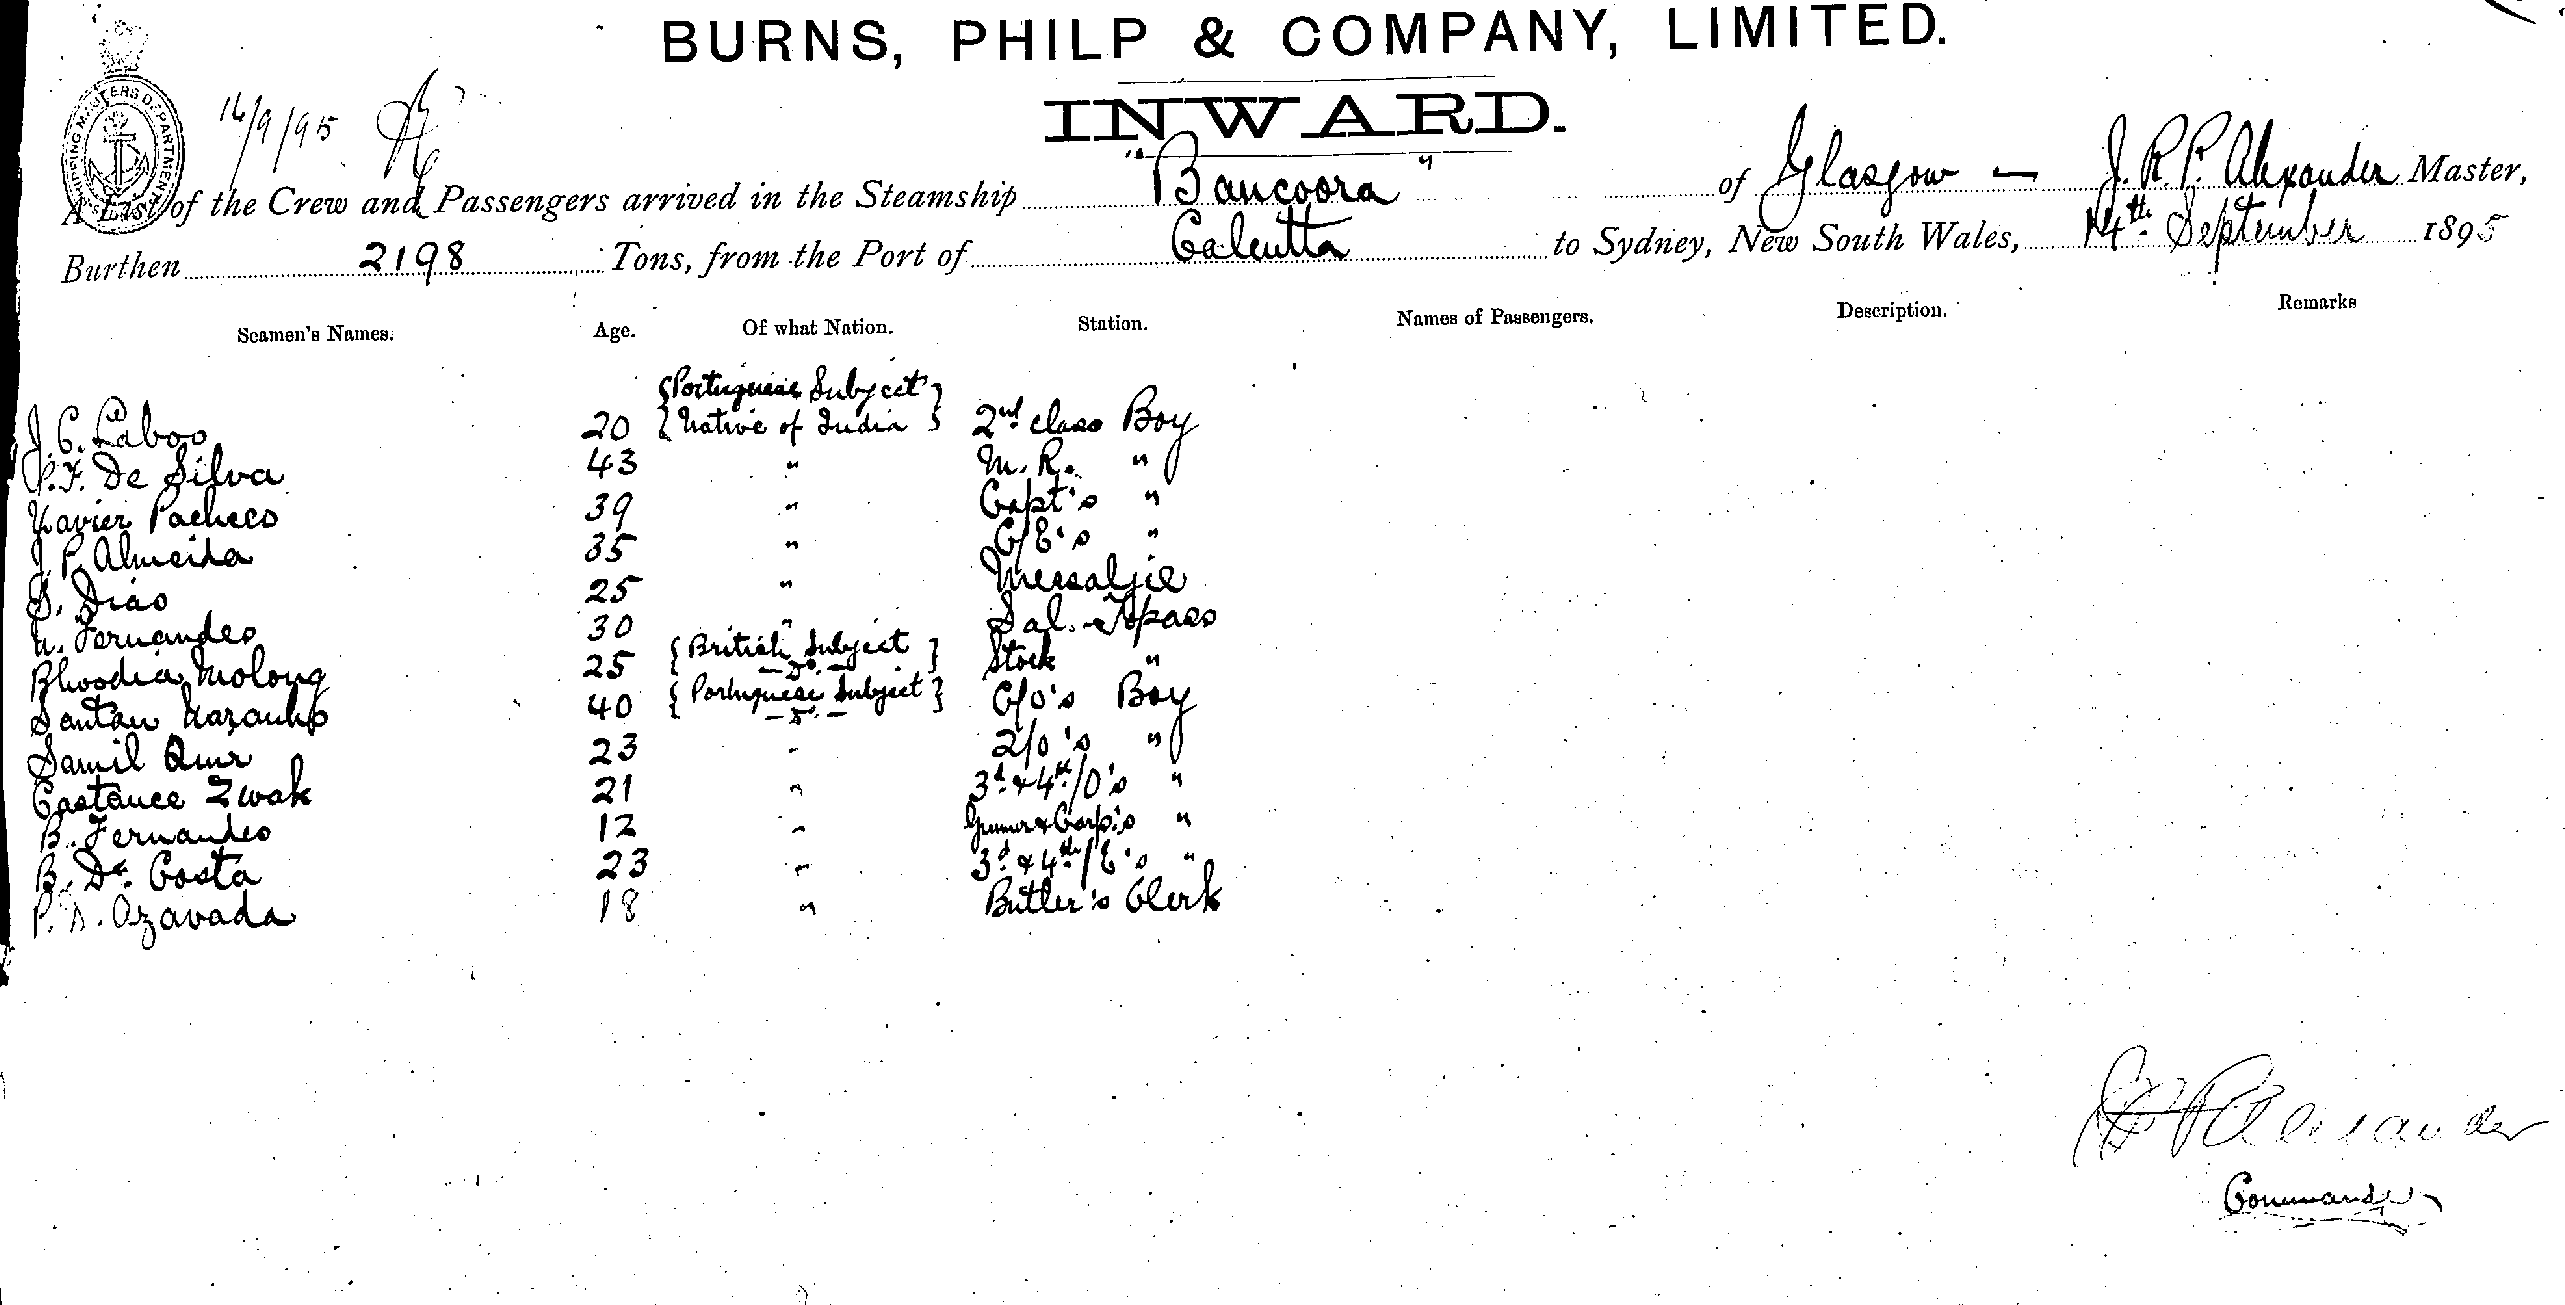 BURNS, PHILP & COMPANY, LIMITED.
INWARD.
SHIPPING MASTERS DEPARTMENT
16/9/95
A List of the Crew and Passengers arrived in the Steamship "Bancoora" of Glasgow — J. R. P. Alexander Master,
Burthen 2198 Tons, from the Port of Calcutta to Sydney, New South Wales, 14th September 1895
Seamen's Names. Age. Of what Nation. Station. Names of Passengers. Description. Remarks
{Portuguese Subject}
J. C. 20 {Native of India} 2nd class Boy
P. F. De Silva 43 " M. R. "
Xavier Pacheco 39 " Capt's "
J. P. Almeida 35 " C/E's "
S. Dias 25 " Messaljie
Fernandes 30 " Sal. Topass
{British Subject}
Bhoodia Molong 25 — Do. — Stock "
{Portuguese Subject}
Santan 40 — Do. — C/O's Boy
Samil 23 " 2/O's "
Castance Zwak 21 " 3d & 4th/O's "
B. Fernandes 12 " Gunner & Carp's "
B. De Costa 23 " 3d & 4th/E's "
P. A. Azavada 18 " Butler's Clerk
J R P Alexander
Commander